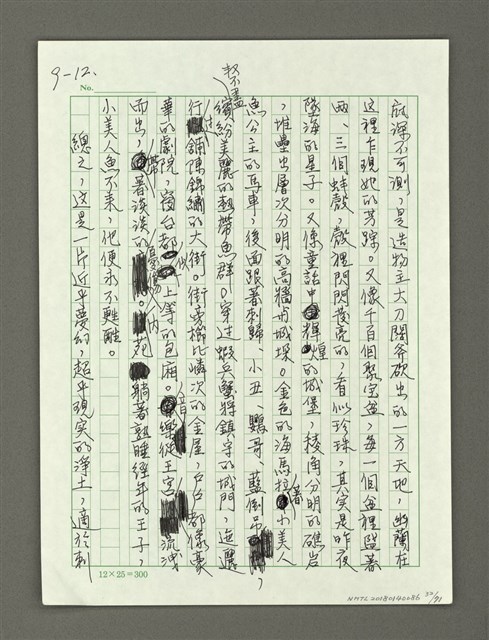 9-12.
No.
成深不可測，是造物主大刀闊斧砍出的一方天地，幽蘭在
這裡乍現她的芳踪。又像千百個聚宝盆，每一個盆裡盛著
兩、三個蚌殼，殼裡閃閃發亮的，看似珍珠，其实是昨夜
墜海的星子。又像童話中輝煌的城堡，稜角分明的礁岩
，堆壘出層次分明的高牆或城垛。金色的海馬拉著小美人
魚公主的馬車，後面跟著刺歸、小丑、鸚哥、藍倒吊，
繽紛美麗的熱帶魚群。穿过蝦兵蟹将鎮守的城門，進
行过鋪陳錦繡的大街。街旁櫛比嶙次的金屋，戶戶都像豪
華的劇院，窗台都似上等的包廂。音樂從王宮流洩
而出，帶著淡淡的。內苑躺著熟睡經年的王子，
小美人魚不來，他便永不甦醒。
總之，這是一片近乎夢幻，超乎現实的淨土，適於刺
12×25=300
NMTL20180140286 32/91